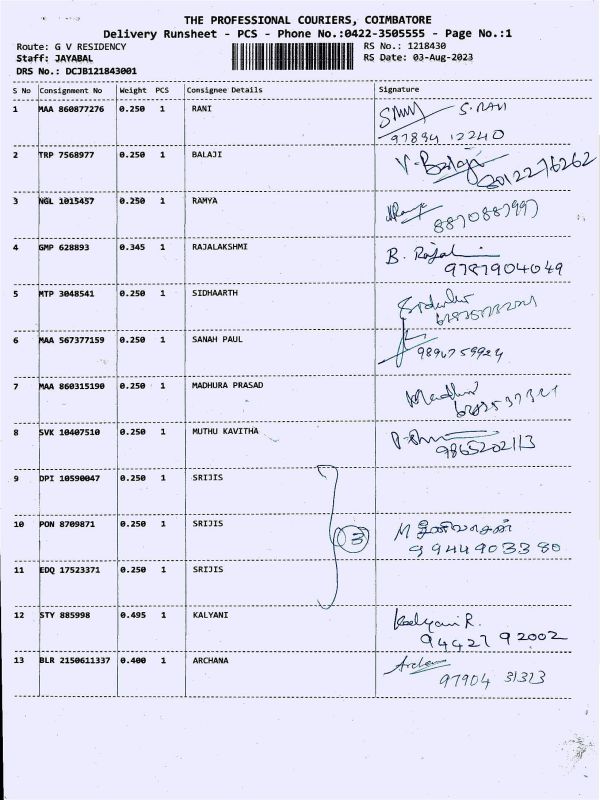 THE PROFESSIONAL COURIERS, COIMBATORE
Delivery Runsheet - PCS - Phone No.:0422-3505555 - Page No.:1
Route: G V RESIDENCY RS No.: 1218430
Staff: JAYABAL RS Date: 03-Aug-2023
DRS No.: DCJB121843001
S No Consignment No Weight PCS Consignee Details Signature
1 MAA 860877276 0.250 1 RANI S. RANI
97894 12240
2 TRP 7568977 0.250 1 BALAJI V. Balaji
3 NGL 1015457 0.250 1 RAMYA
8870887997
4 GMP 628893 0.345 1 RAJALAKSHMI B. Rajal
9787904049
5 MTP 3048541 0.250 1 SIDHAARTH
6 MAA 567377159 0.250 1 SANAH PAUL
7 MAA 860315190 0.250 1 MADHURA PRASAD
8 SVK 10407510 0.250 1 MUTHU KAVITHA
9865202113
9 DPI 10590047 0.250 1 SRIJIS
10 PON 8709871 0.250 1 SRIJIS 3
9944903380
11 EDQ 17523371 0.250 1 SRIJIS
12 STY 885998 0.495 1 KALYANI Kalyani R.
94427 92002
13 BLR 2150611337 0.400 1 ARCHANA Archana
97904 31323